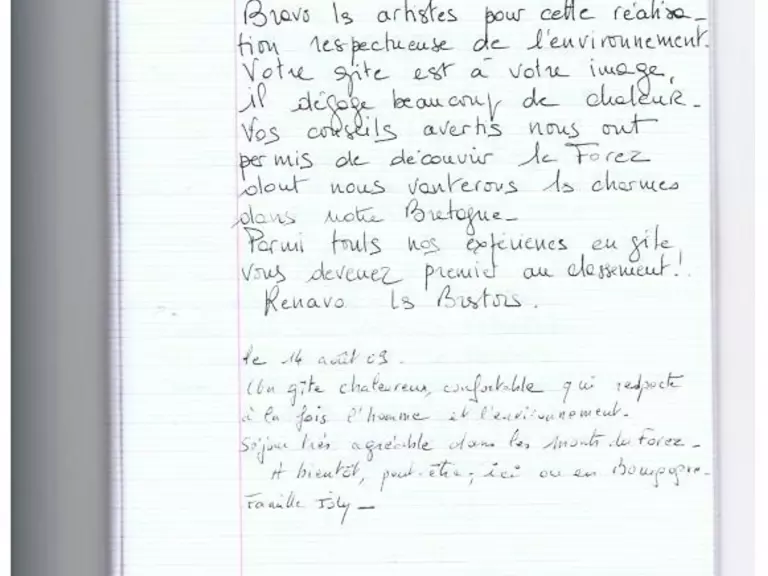 Bravo ls artistes pour cette réalisa_
tion respectueuse de l'environnement.
Votre gîte est à votre image,
il dégage beaucoup de chaleur.
Vos conseils avertis nous ont
permis de découvir le Forez
dont nous vanterons ls charmes
dans notre Bretagne_
Parmi touts nos expériences en gîte
vous devenez premier au classement!
Kenavo ls
le 14 août 03.
Un gîte chaleureux, confortable qui respecte
à la fois l'homme et l'environnement.
Séjour très agréable dans les Monts du Forez_
A bientôt, peut-être, ici ou en Bourgogne_
Famille